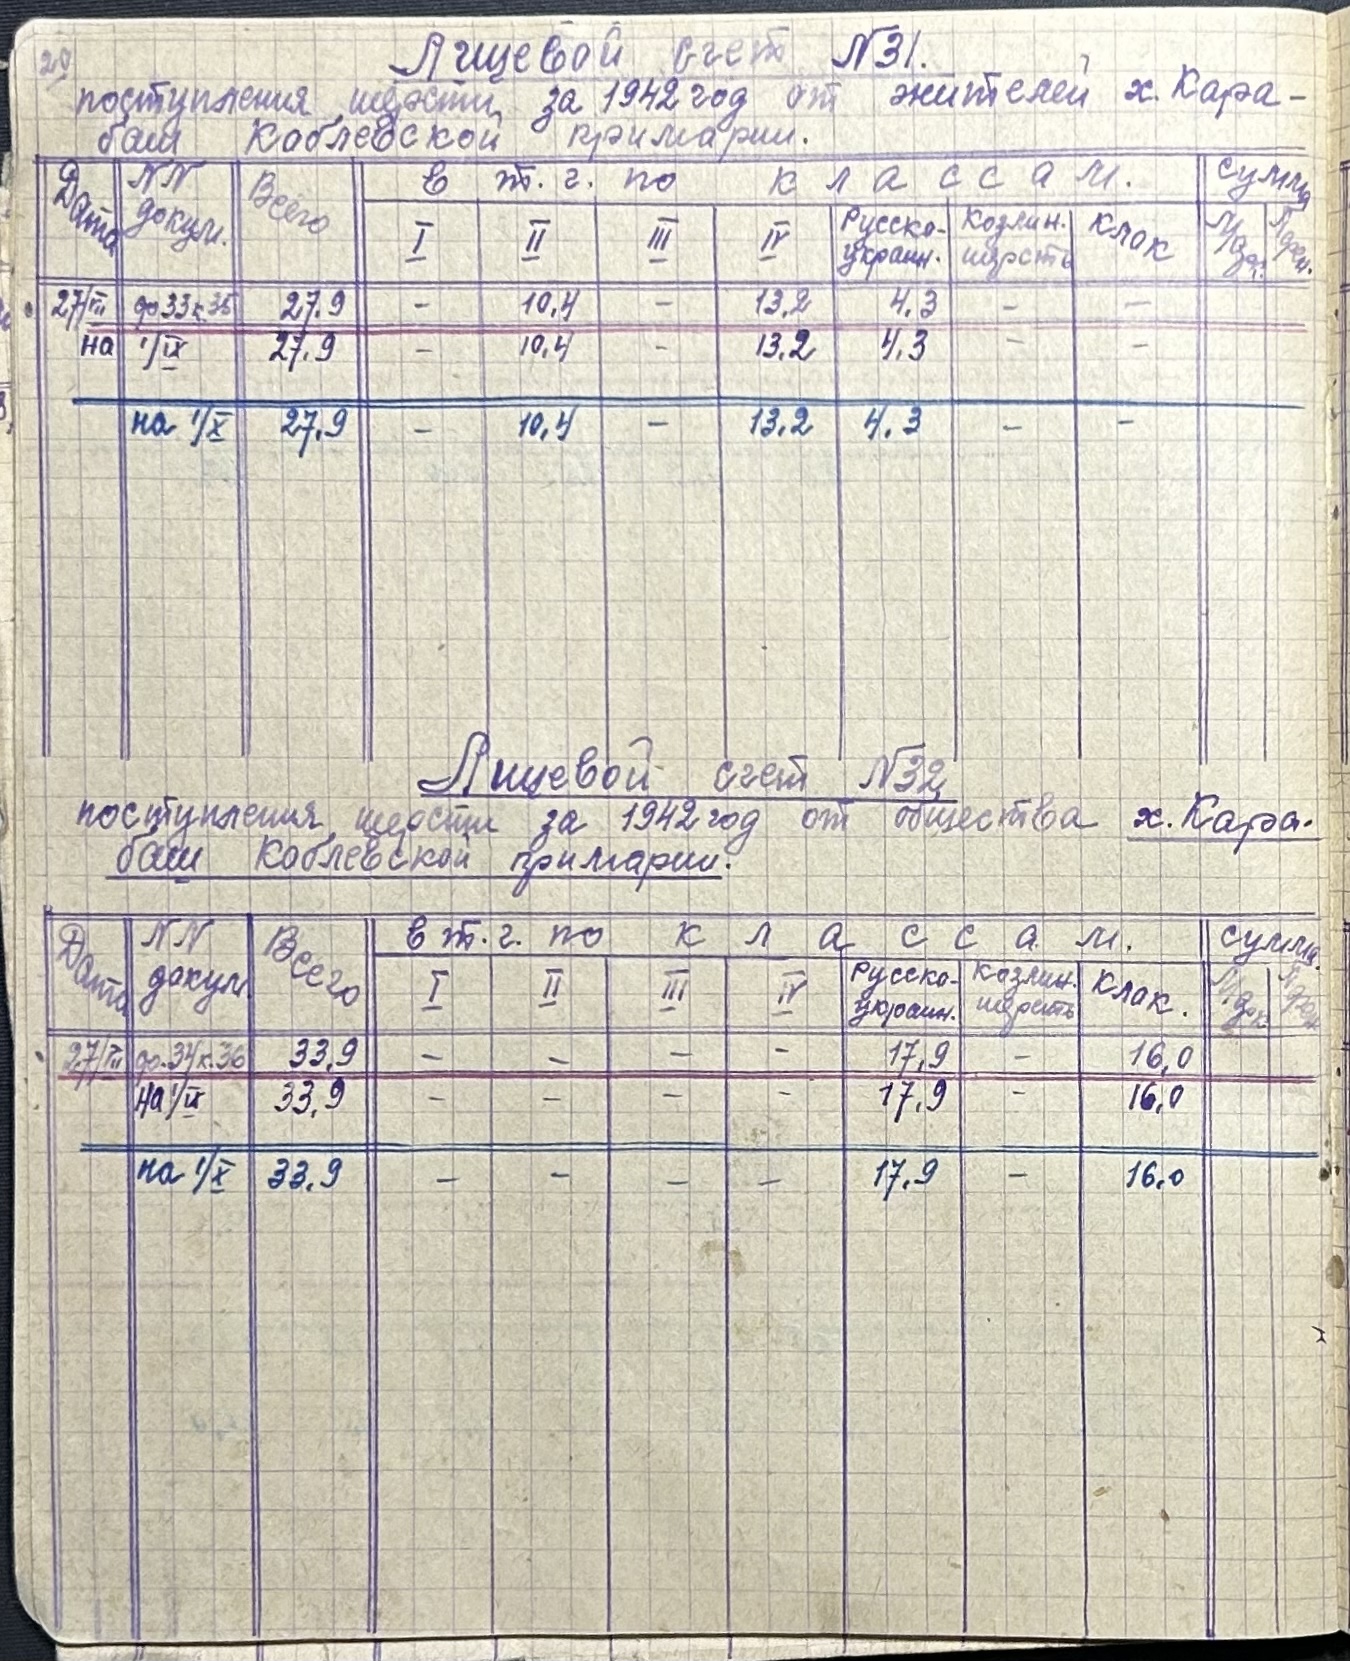 29
Лицевой счет N31.
поступления шерсти за 1942 год от жителей х. Кара-
баш Коблевской примарии.
Дата NN докум. Всего в т. г. по классам. сумма
I II III IV Русско-украин. Козлин. шерсть Клок
27/III до 33 к. 35 27.9 - 10,4 - 13,2 4.3 - -
на 1/IX 27.9 - 10,4 - 13.2 4.3 - -
на 1/X 27.9 - 10,4 - 13.2 4.3 - -
Лицевой счет N32
поступления шерсти за 1942 год от общества х. Кара-
баш Коблевской примарии.
Дата NN докум Всего в т. г. по классам. сумма.
I II III IV Русско-украин. Козлин. шерсть Клок.
27/III до. 34 к. 36 33,9 - - - - 17,9 - 16,0
на 1/IX 33,9 - - - - 17.9 - 16,0
на 1/X 33.9 - - - - 17,9 - 16.0